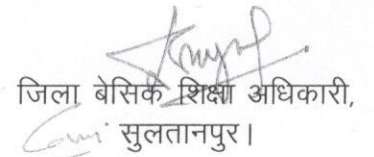 जिला बेसिक शिक्षा अधिकारी,
सुलतानपुर।